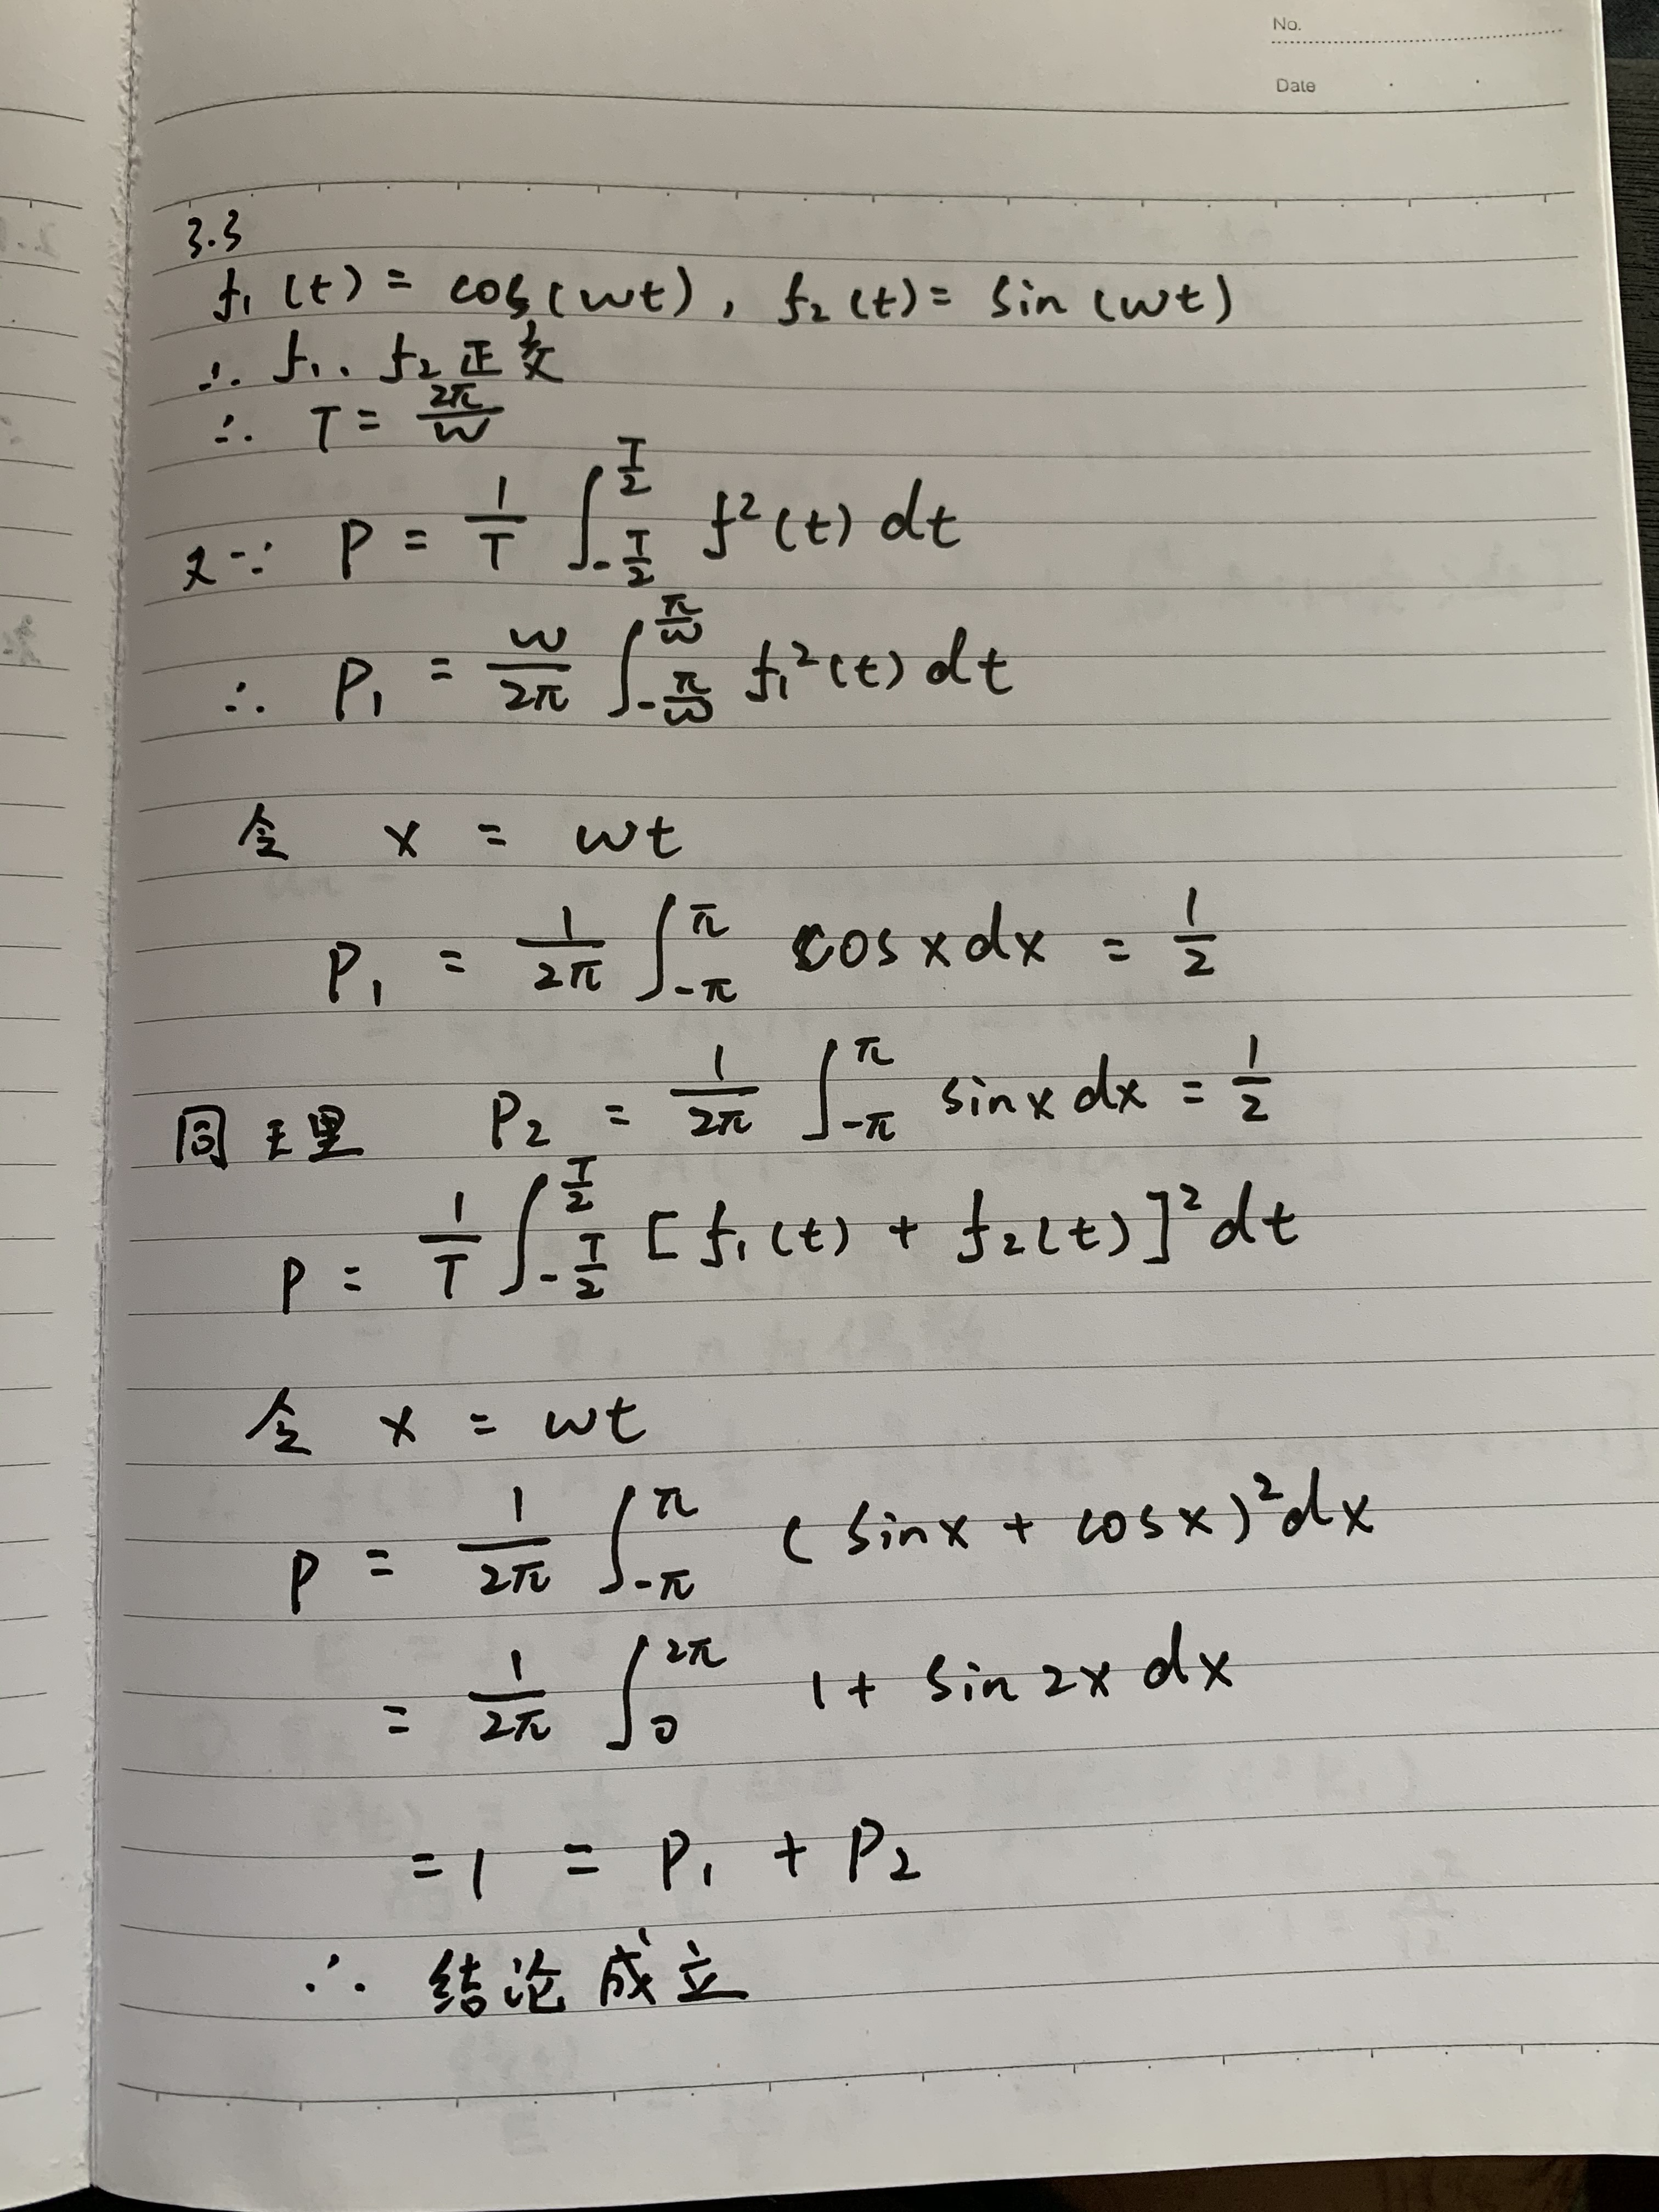 No.
Date
3.3
f₁(t) = cos(wt), f₂(t) = sin(wt)
∴ f₁、f₂正交
∴ T = 2π/w
又∵ P = 1/T ∫_{-T/2}^{T/2} f²(t) dt
∴ P₁ = w/2π ∫_{-π/w}^{π/w} f₁²(t) dt
令 x = wt
P₁ = 1/2π ∫_{-π}^{π} cos x dx = 1/2
同理 P₂ = 1/2π ∫_{-π}^{π} sin x dx = 1/2
P = 1/T ∫_{-T/2}^{T/2} [f₁(t) + f₂(t)]² dt
令 x = wt
P = 1/2π ∫_{-π}^{π} (sin x + cos x)² dx
= 1/2π ∫_{0}^{2π} 1 + sin 2x dx
= 1 = P₁ + P₂
∴ 结论成立